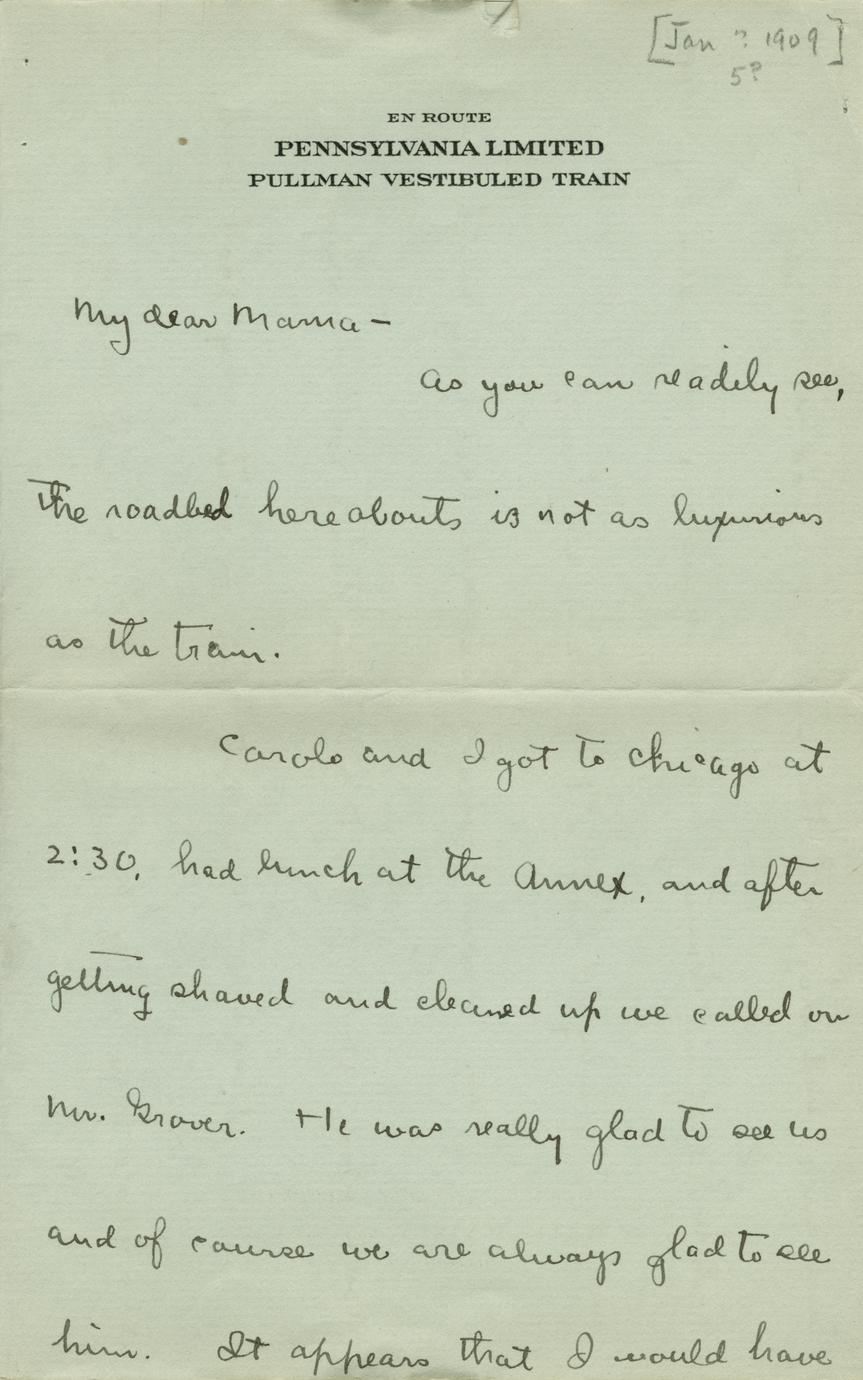 [Jan ? 1909]
5?
EN ROUTE
PENNSYLVANIA LIMITED
PULLMAN VESTIBULED TRAIN
My dear Mama –
As you can readily see,
the roadbed hereabouts is not as luxurious
as the train.
Carolo and I got to Chicago at
2:30, had lunch at the Annex, and after
getting shaved and cleaned up we called on
Mr. Grover. He was really glad to see us
and of course we are always glad to see
him. It appears that I would have